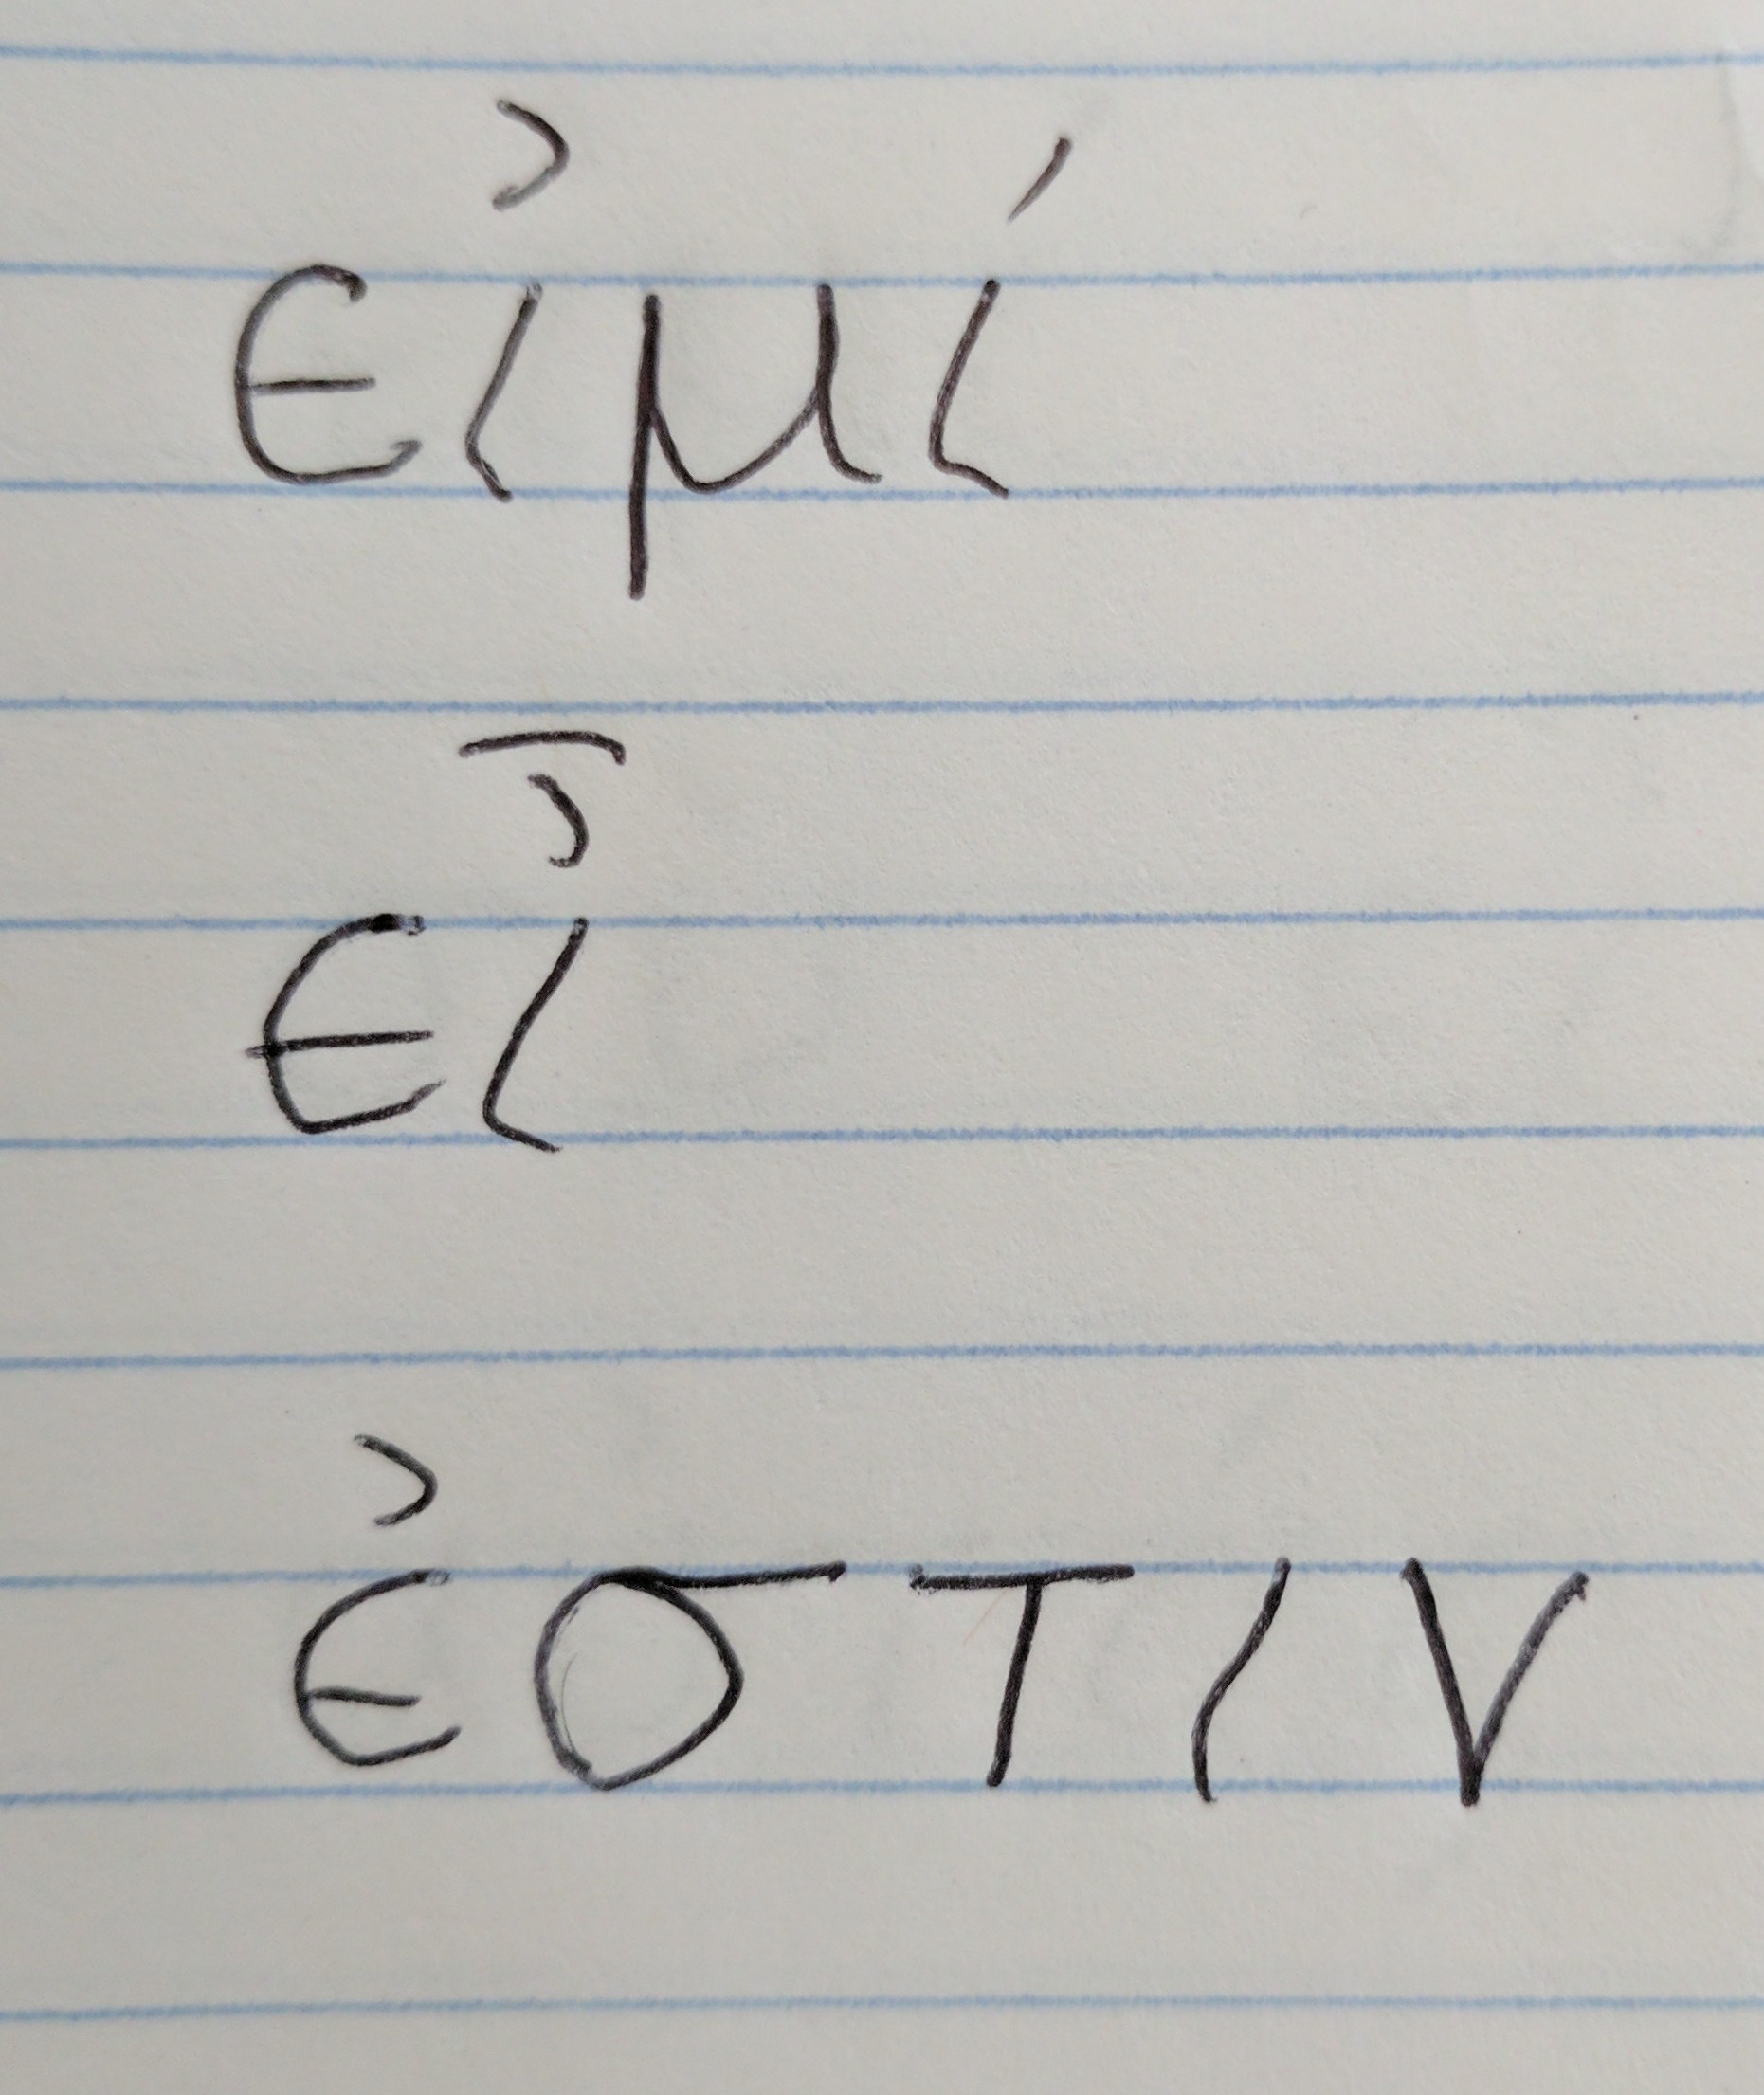 εἰμί
εἶ
ἐστιν